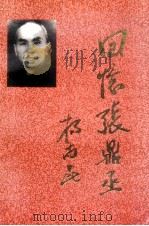 回憶張鼎丞
www.mtoou.info